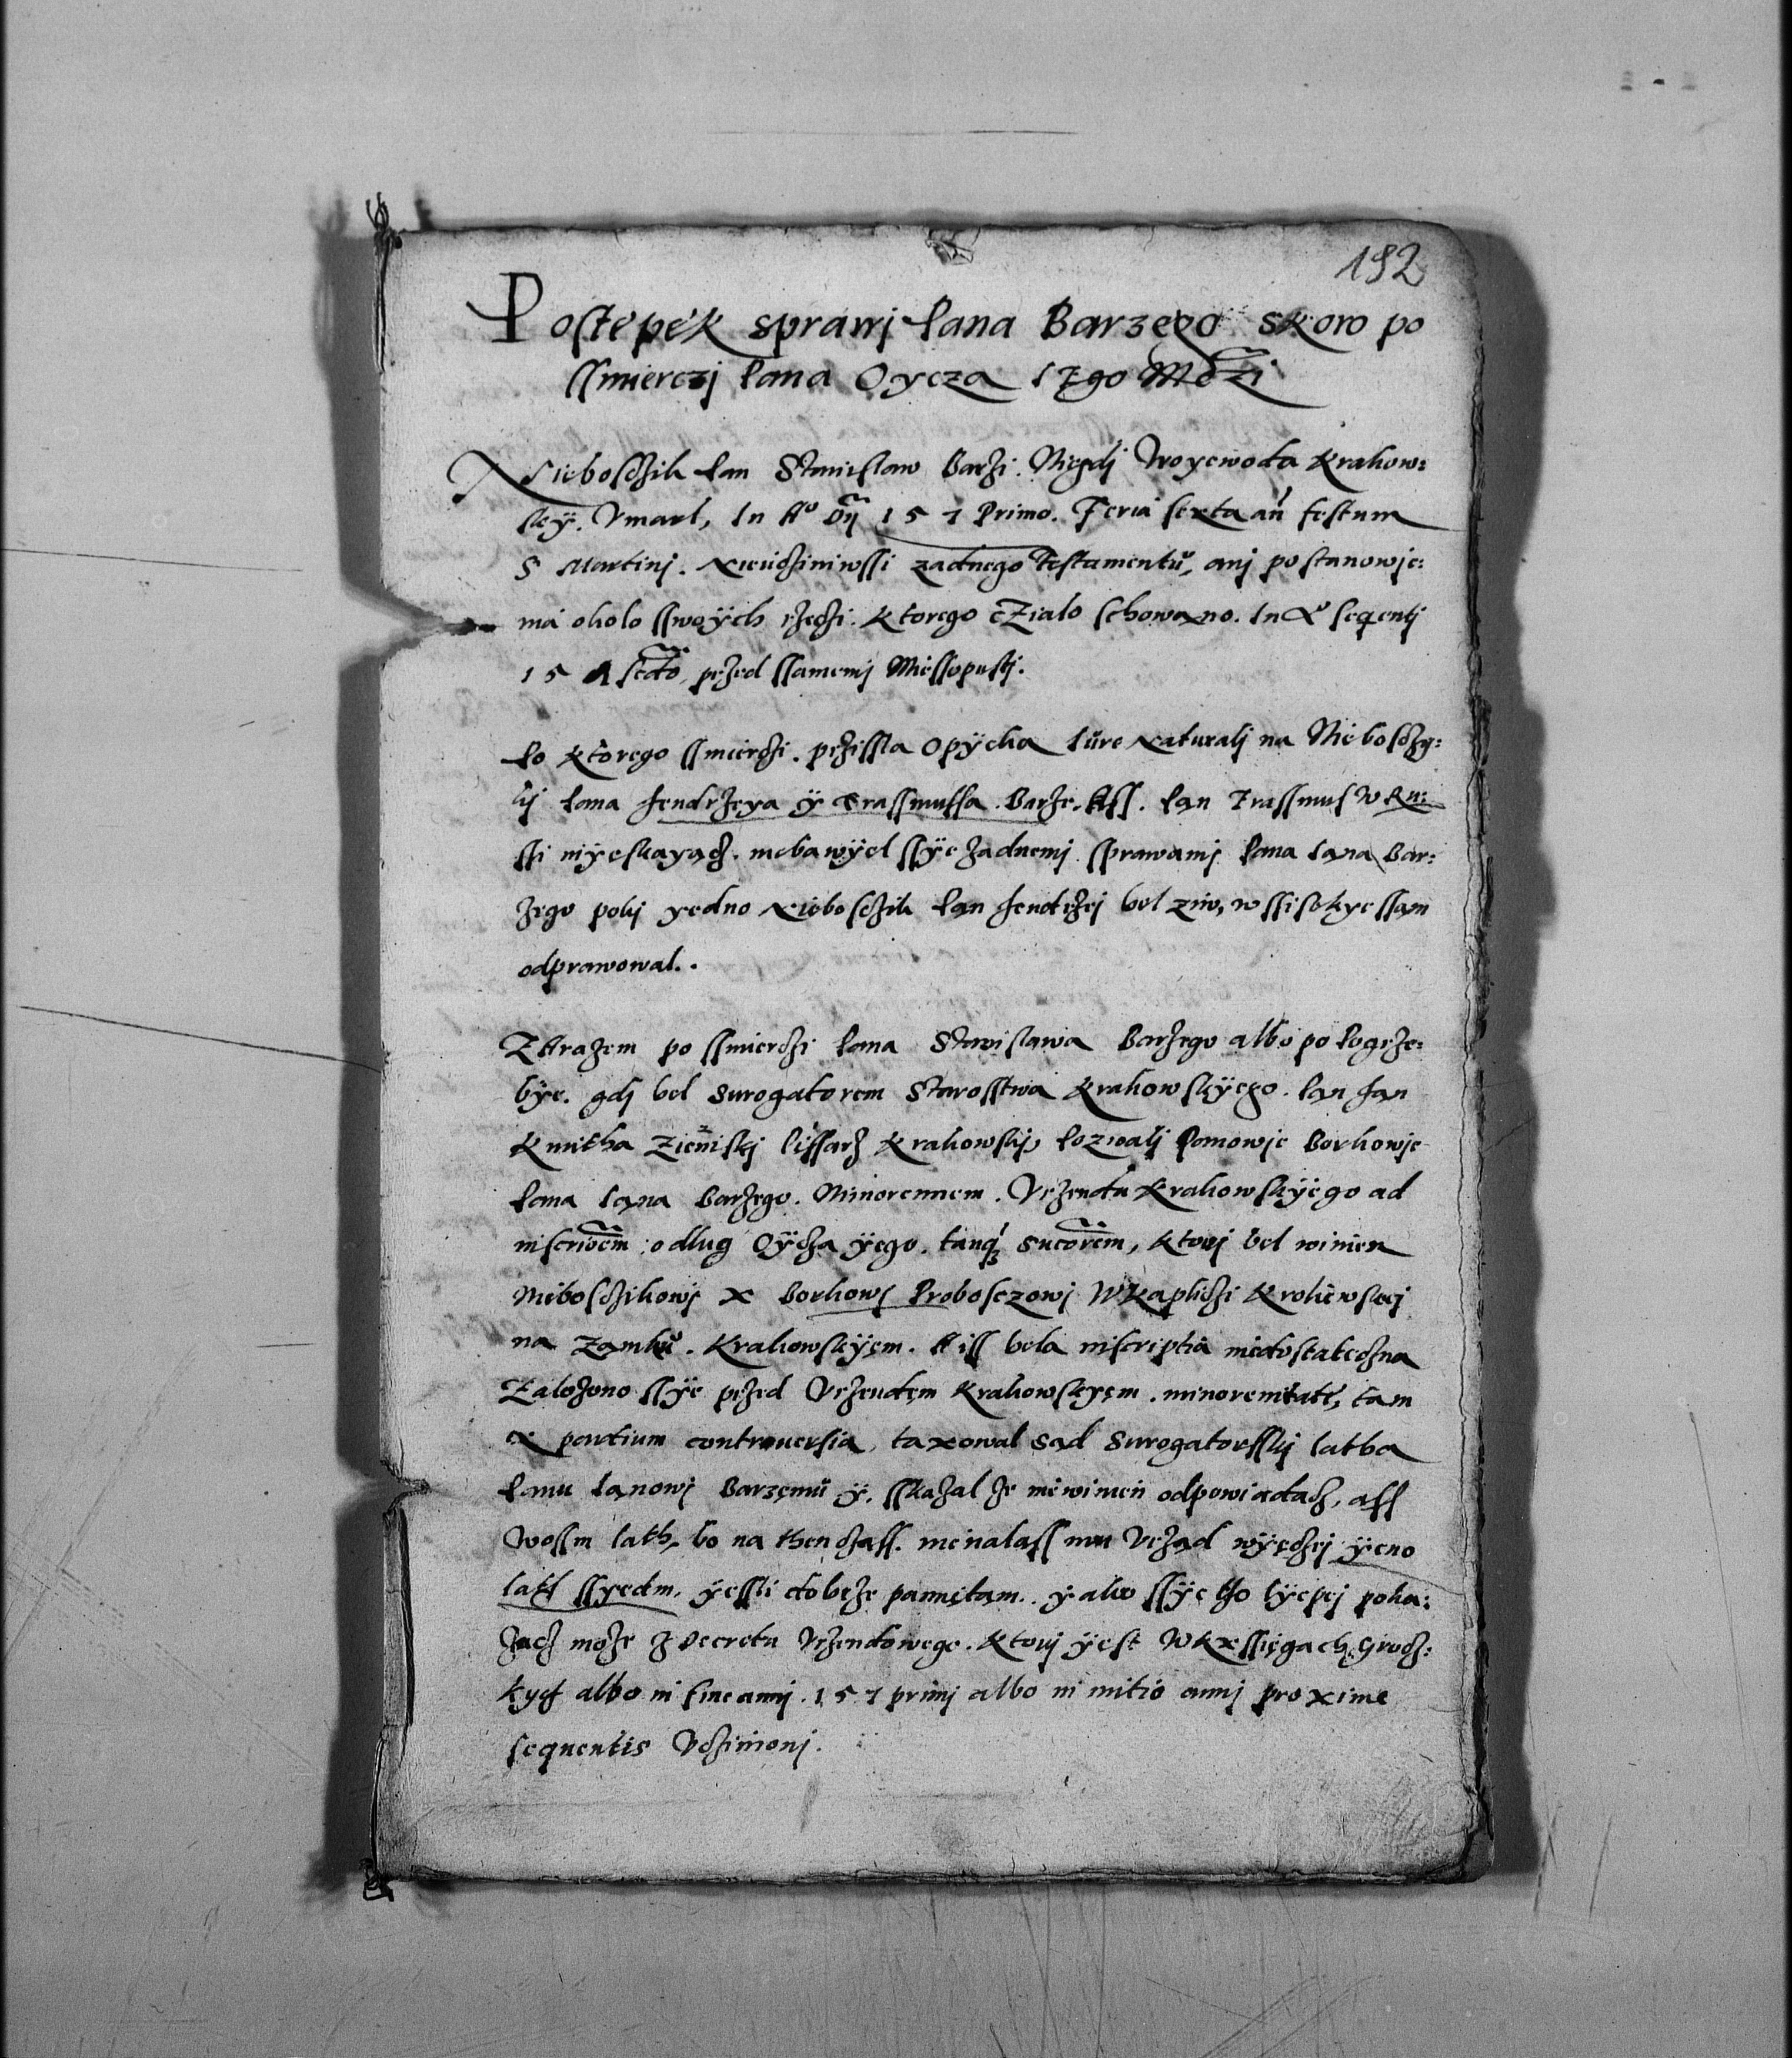 192
Postępek sprawj Pana Barzego skoro po
ssmierczj Pana Oycza Jego Mczi
Nieboschzik Pan Stanislaw Barzi. Niegdj Woyewoda Krakow:
skÿ. Vmarl, In A° Dñi 157 Primo. Feria sexta añ festum
S Martinj. Nieuchziniwssi zadnego Testamentŭ, anj postanowie:
nia okolo sswoÿch rzechzi. Ktorego cZialo schowano. In A° seqentj
157 scdo, przed ssamemj Miessopustj.
Po Ktorego ssmierchzi. przissla Opÿeka Iŭre naturalj na Nieboschzy:
kj Pana Jendrzeya ÿ Erassmussa. Barze, Ass. Pan Erassmus w Ru:
ssi miÿeskayach. niebawÿel ssÿe zadnemj sprawamj Pana Iana Bar:
zego pokj yedno Nieboschzik Pan Jendrzej bel ziw, wssisthkye ssam
odprawowal..
ZAtrazem po ssmierchzi Pana Stanislawa Barzego albo po Pogrze:
bÿe. gdj bel Surogatorem Starosstwa Krakowskÿego. Pan Jan
Kmitha Ziemskj Pissarz Krakowskij, Pozwalj Panowie Borkowie
Pana Iana Barzego. Minorennem. Vrzendu Krakowskÿego ad
inscriōem o dlug Oÿcha ÿego. tanq; succorem, Ktorj bel winien
Nieboschzikowj X Borkowj Proboszczowj W Kaplichzi Krolewskiej
na Zamkŭ. Krakowskÿem. A iss bela inscriptia niedostatechzna
Zalozono ssÿe przed Vrzendem Krakowskyem. minorenitate, tam
ex partium controuersia, taxowal Sąd Surogatorsskj latba
Panu Ianowj Barzemŭ ÿ. sskazal ze niewinien odpowiadach, ass
wossm lath, bo na then chzass. nienalass mu Vrząd wÿechzej ÿeno
lath ssyedm. ÿessli dobrze pamiętam. ÿako ssÿe tho lÿepej poka:
zach moze z Decretu Vrzendowego. Ktorj ÿest W Kxssięgach Grodz:
kych albo in fine annj. 157 primj albo in initio annj proxime
sequentis Vchzinionj.